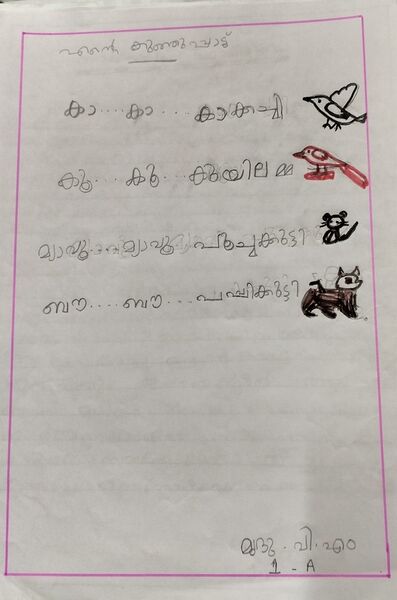 എന്റെ കുഞ്ഞുപാട്ട്
കാ.... കാ.... കാക്കച്ചി
കൂ.... കൂ.... കുയിലമ്മ
മ്യാവൂ.... മ്യാവൂ പൂച്ചക്കുട്ടി
ബൗ.... ബൗ.... പപ്പിക്കുട്ടി
മൃദു. വി. എം
1 - A